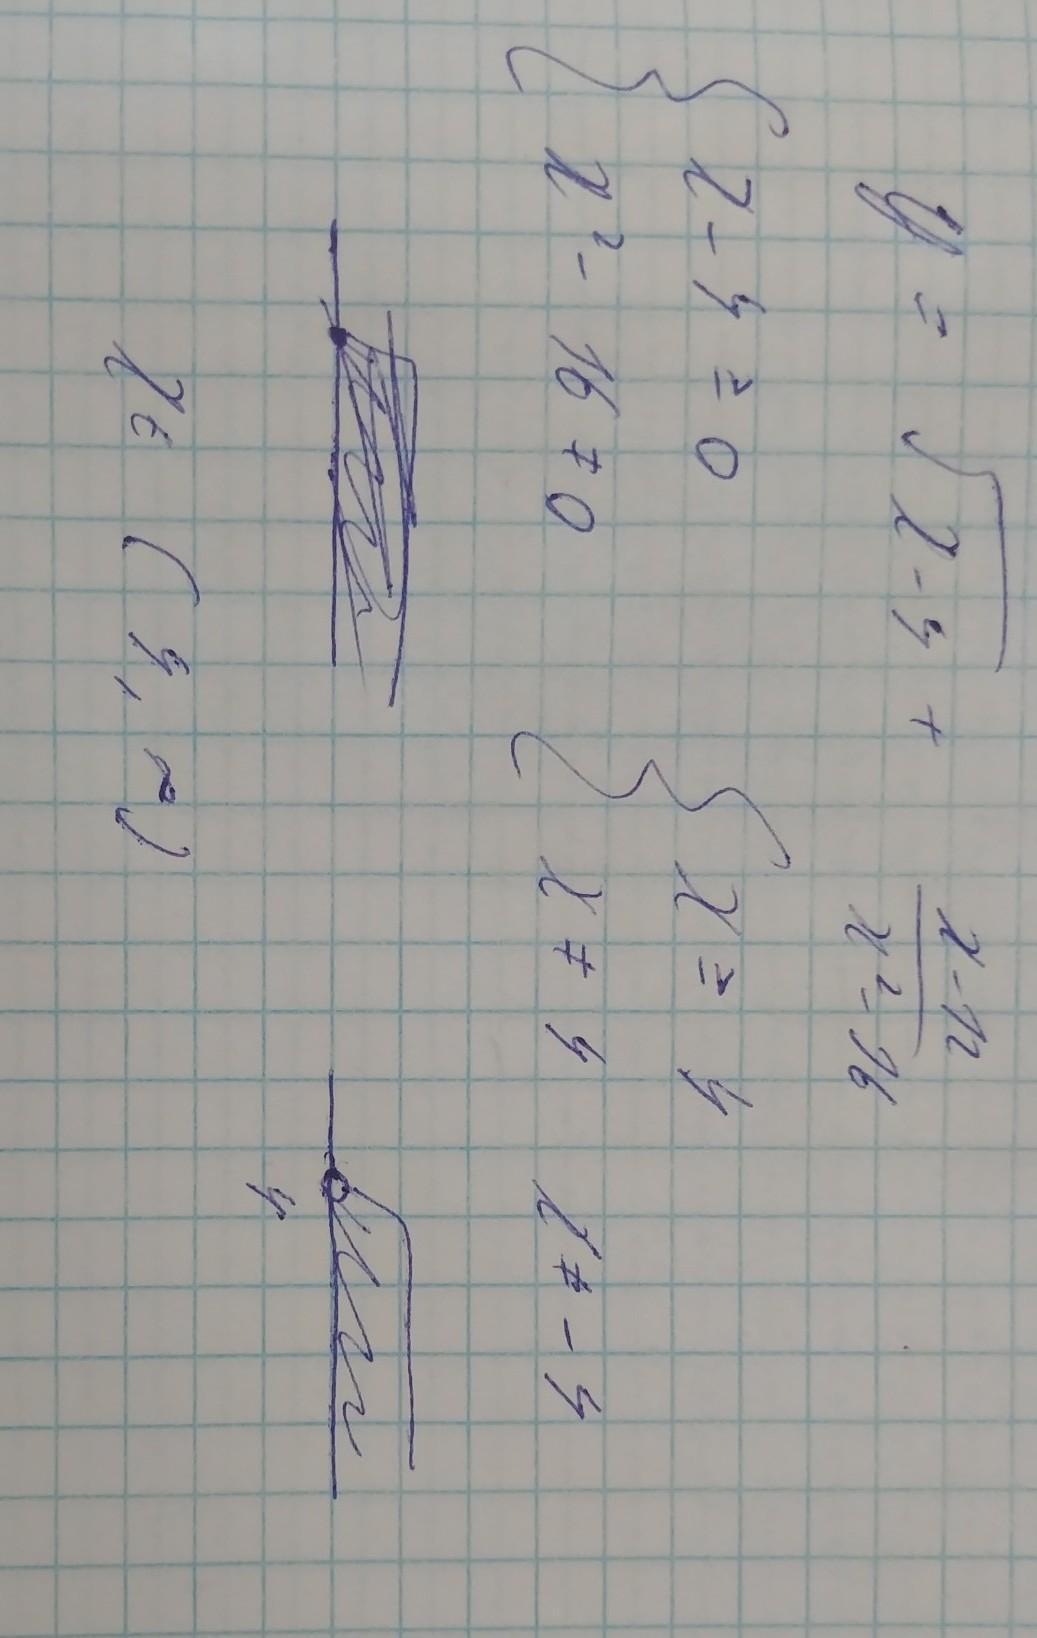 y = √(x - 4) + (x - 12)/(x² - 16)
{ x - 4 ≥ 0 { x ≥ 4
x² - 16 ≠ 0 x ≠ 4 x ≠ -4
4
x ∈ (4, ∞)